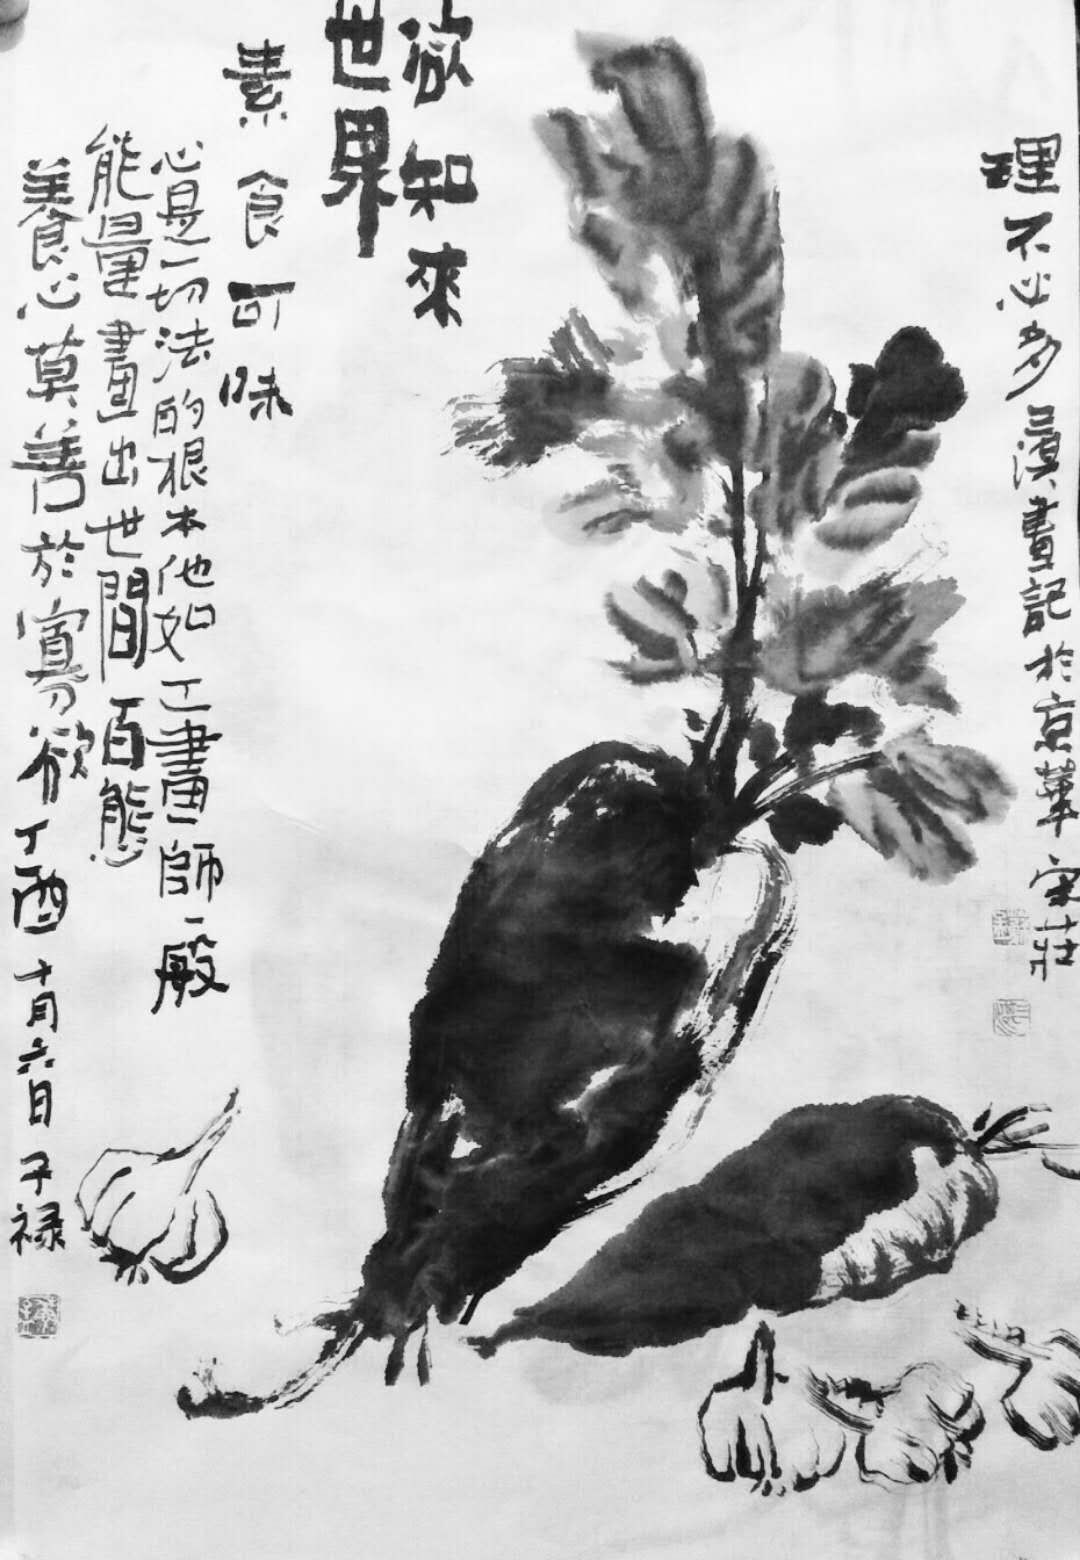 理不必多
畫記於京華宋莊
欲知來
世界
素食可味
心是一切法的根本他如工畫師一般
能量畫出世間百態
養心莫善於寡欲丁酉十月六日子禄